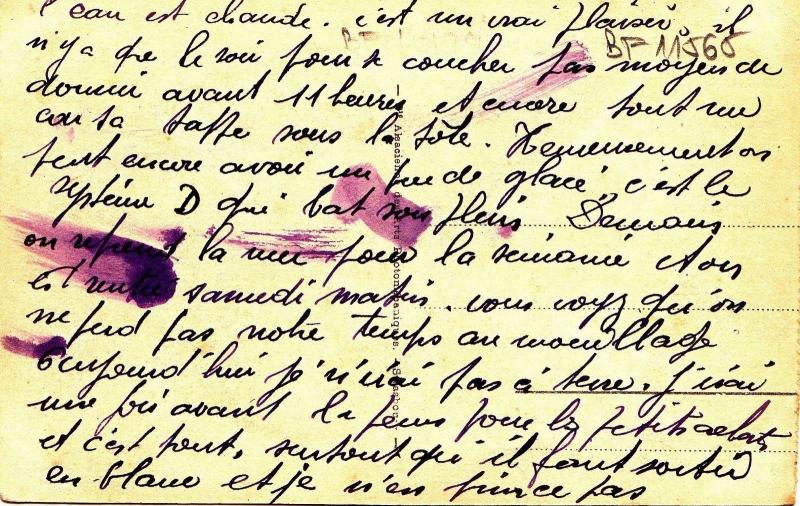 l'eau est chaude. c'est un vrai plaisir, il
BF 11565
n'y a que le soir pour se coucher pas moyen de
dormir avant 11 heures et encore tout nu
car ça taffe sous la tôle. Heureusement on
peut encore avoir un peu de glace, c'est le
système D qui bat son plein Demain
on reprend la mer pour la semaine et on
est rentré samedi matin. vous voyez qu'on
ne perd pas notre temps au mouillage
aujourd'hui je n'irai pas à terre. J'irai
une fois avant la fin pour les petits achats
et c'est tout, surtout qu'il faut sortir
en blanc et je n'en pince pas